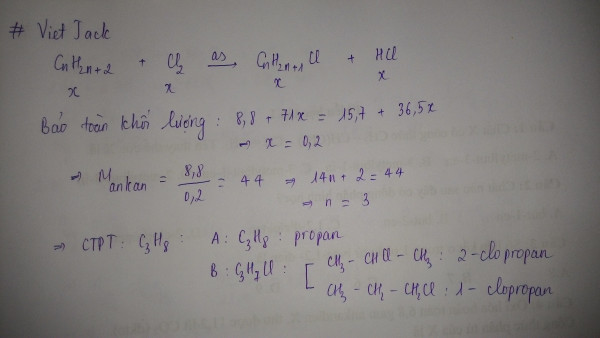 # Viet Jack
CnH2n+2 + Cl2 as→ CnH2n+1Cl + HCl
x x x x
Bảo toàn khối lượng : 8,8 + 71x = 15,7 + 36,5x
⇒ x = 0,2
⇒ Mankan = 8,8/0,2 = 44 ⇒ 14n + 2 = 44
⇒ n = 3
⇒ CTPT : C3H8 : A : C3H8 : propan
B : C3H7Cl : [ CH3 - CHCl - CH3 : 2-clopropan
CH3 - CH2 - CH2Cl : 1-clopropan